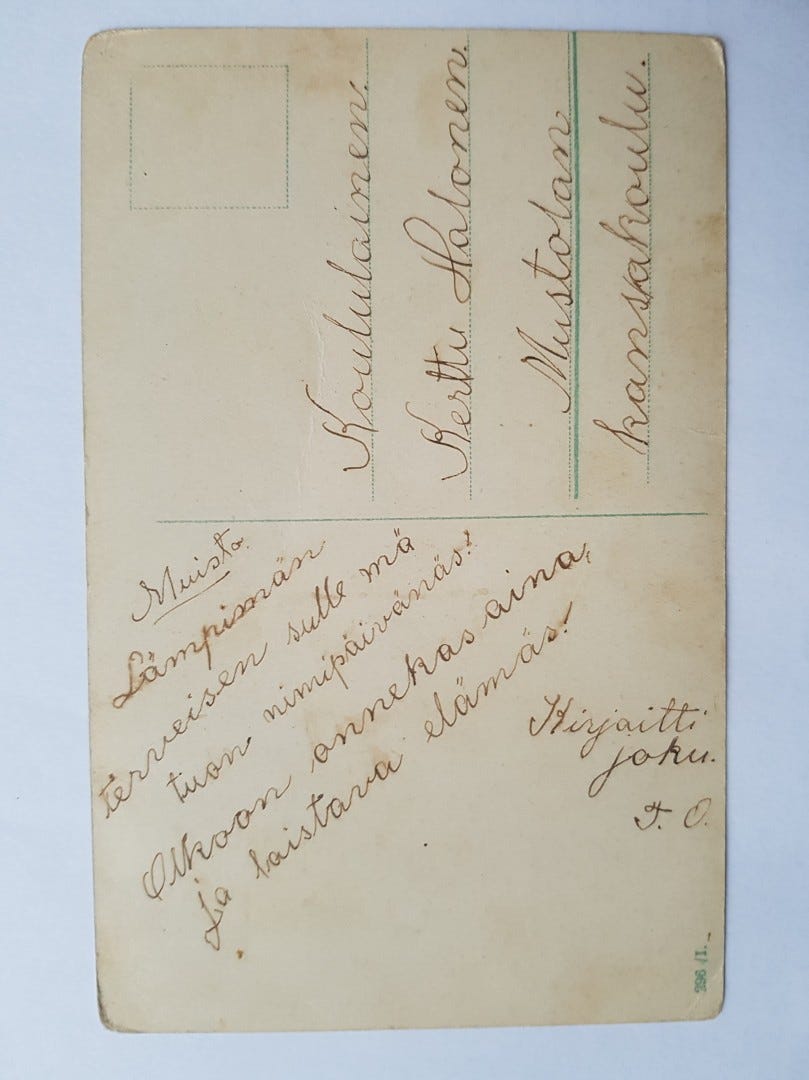 Muista.
Lämpimän
terveisen sulle mä
tuon nimipäivänäs!
Olkoon onnekas aina,
Ja loistava elämäs!
Kirjoitti
joku.
T. O.
Koululainen.
Kerttu Halonen.
Mustolan
kansakoulu.
396/I.